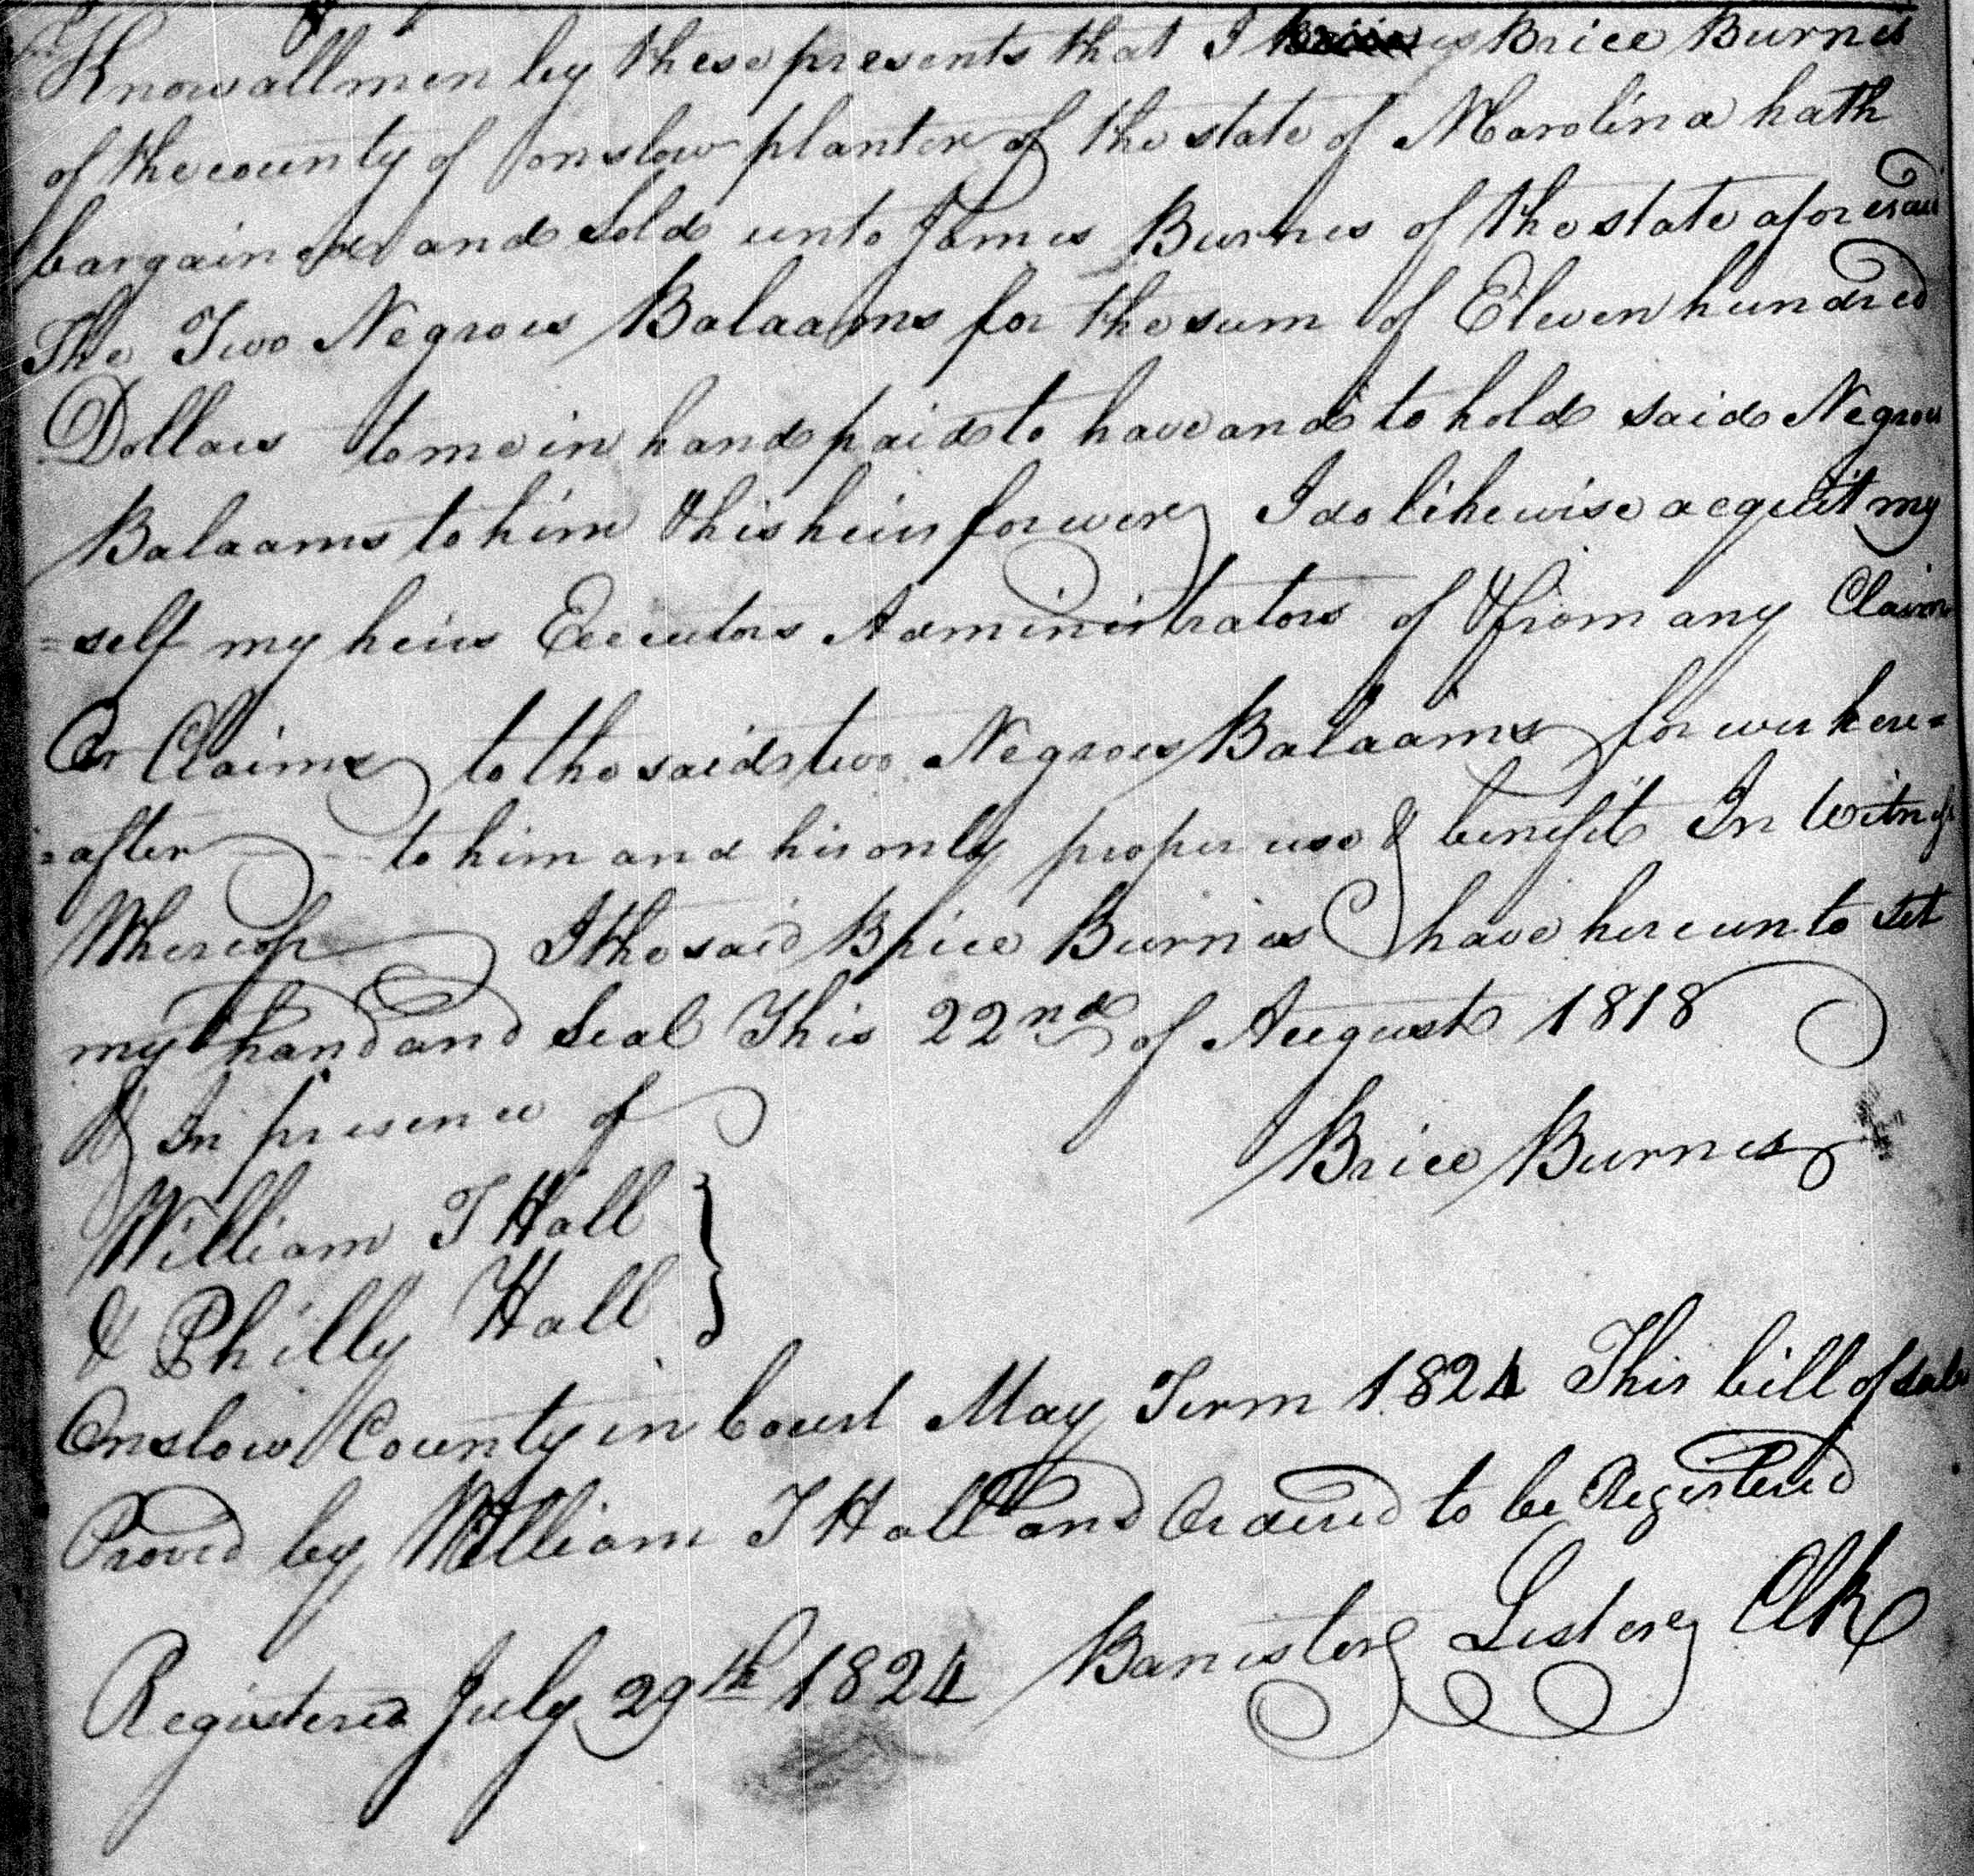 Know all men by these presents that I Brice Burnes
of the county of onslow planter of the state of N Carolina hath
bargained and Sold unto James Burnes of the state aforesaid
The Two Negroes Balaams for the sum of Eleven hundred
Dollars to me in hand paid to have and to hold said Negroes
Balaams to him & his heirs forever I do likewise acquit my
=self my heirs Executors Administrators of & from any Claim
Or Claims to the said two Negroes Balaams for ever here=
=after to him and his only proper use & benefit In Witness
Whereof I the said Brice Burnes have hereunto set
my hand and Seal This 22nd of August 1818
In presence of
Brice Burnes
William T Hall
& Philly Hall
Onslow County in Court May Term 1824 This bill of sale
Proved by William T Hall and Ordered to be Registered
Banister Lester Clk
Registered July 29th 1824